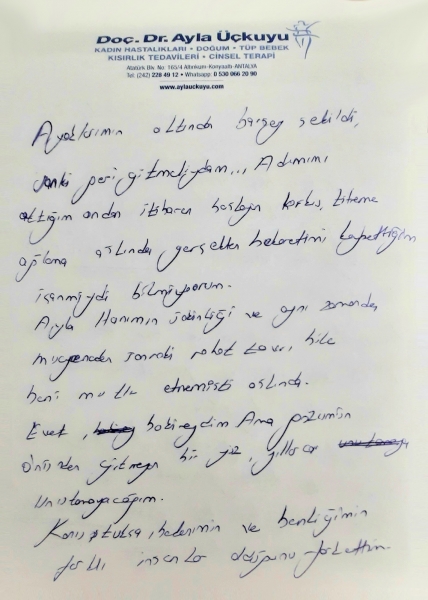 Doç. Dr. Ayla Üçkuyu
KADIN HASTALIKLARI • DOĞUM • TÜP BEBEK
KISIRLIK TEDAVİLERİ • CİNSEL TERAPİ
Atatürk Blv. No: 165/4 Altınkum-Konyaaltı-ANTALYA
Tel: (242) 228 49 12 • Whatsapp: 0 530 066 20 90
www.aylauckuyu.com
Ayaklarımın altından birşey çekildi,
sanki geri gitmeliydim... Adımımı
attığım andan itibaren başlayan korku, titreme
ağlama aslında gerçekten bekaretimi kaybettiğim
için miydi bilmiyorum.
Ayla Hanımın sakinliği ve aynı zamanda
muayeneden sonraki rahat tavrı, bile
beni mutlu etmemişti aslında.
Evet, bakireydim Ama gözümün
önünden gitmeyen bir yüz, yıllarca
unutamayacağım.
bedenimin ve benliğimin
farklı insanlar olduğunu farkettim.